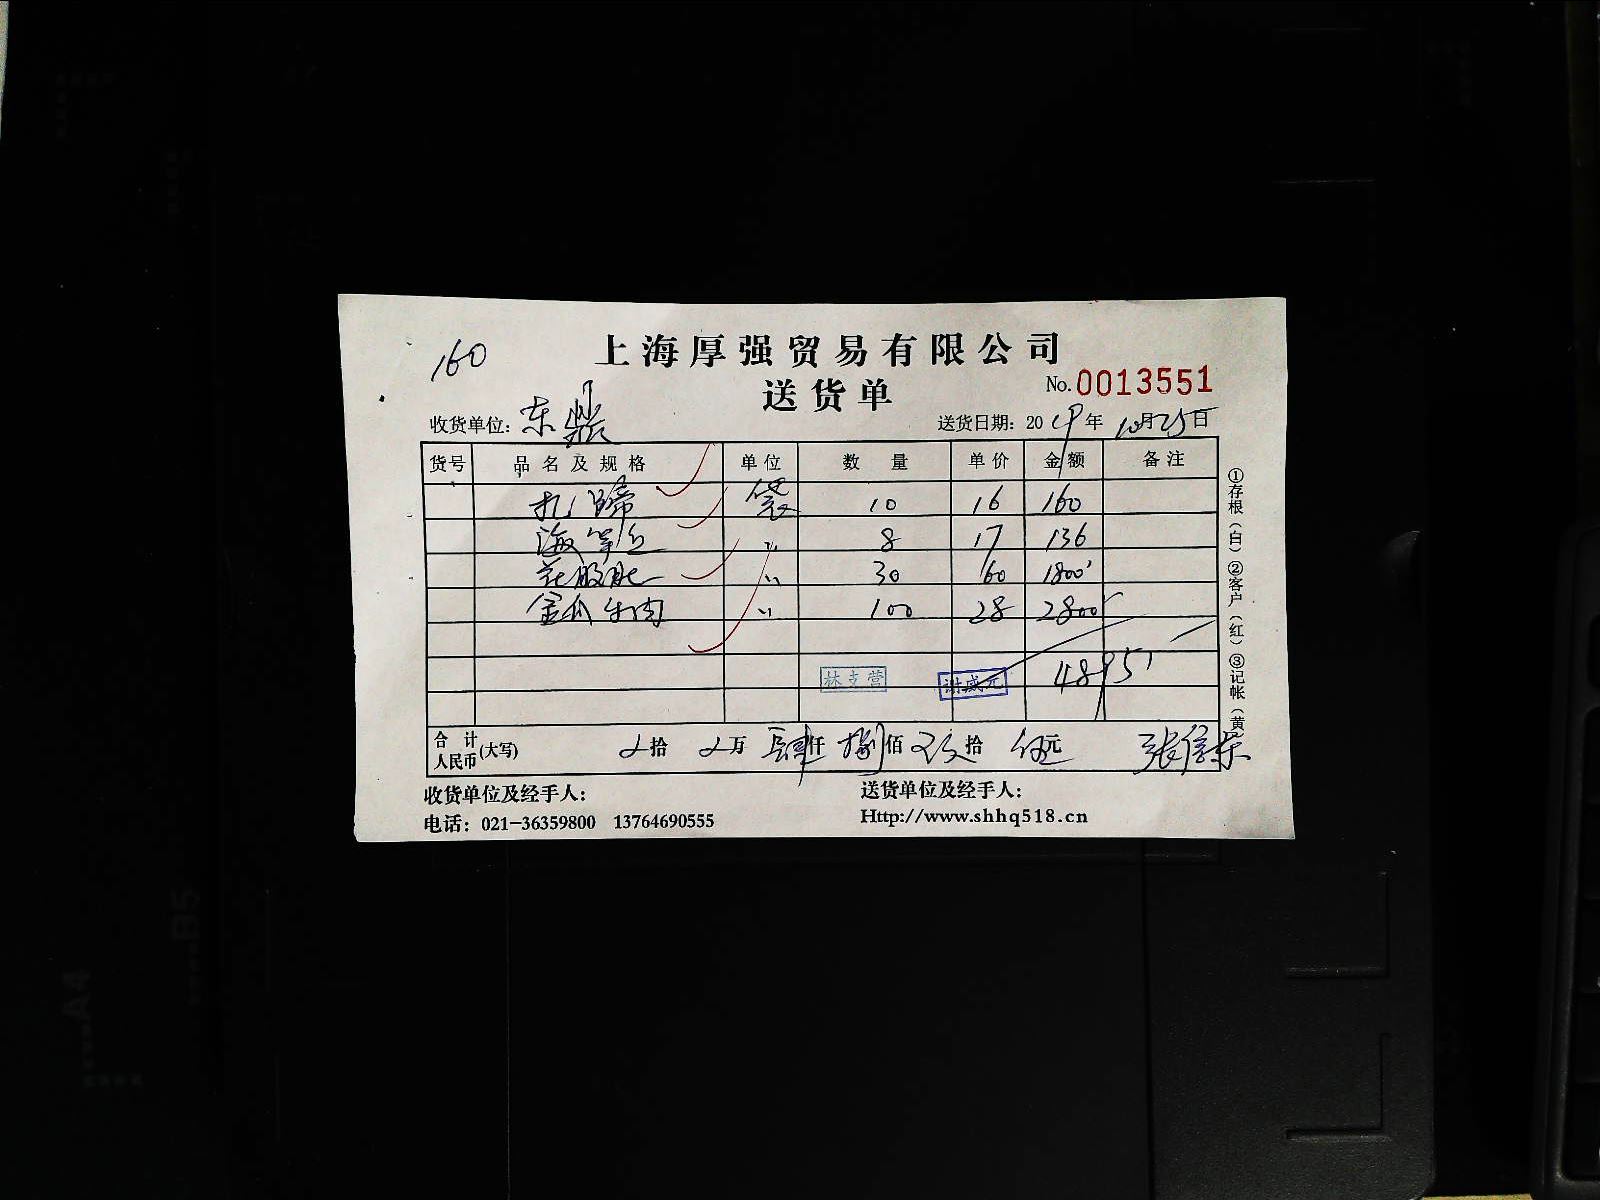 160
上海厚强贸易有限公司
送货单
No.0013551
收货单位：东鼎
送货日期：2019年10月25日
货号 品名及规格 单位 数量 单价 金额 备注
扎蹄 袋 10 16 160
海草丘 〃 8 17 136
花股肚 〃 30 60 1800
金瓜牛肉 〃 100 28 2800
林支营 谢盛元 4895
合计人民币(大写) 拾 万 肆仟捌佰玖拾伍元
张信东
收货单位及经手人：
送货单位及经手人：
电话：021-36359800 13764690555
Http://www.shhq518.cn
①存根（白）②客户（红）③记帐（黄
B5
A4